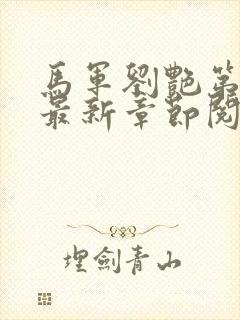 馬軍劉艷第
最新章節閱
埋劍青山